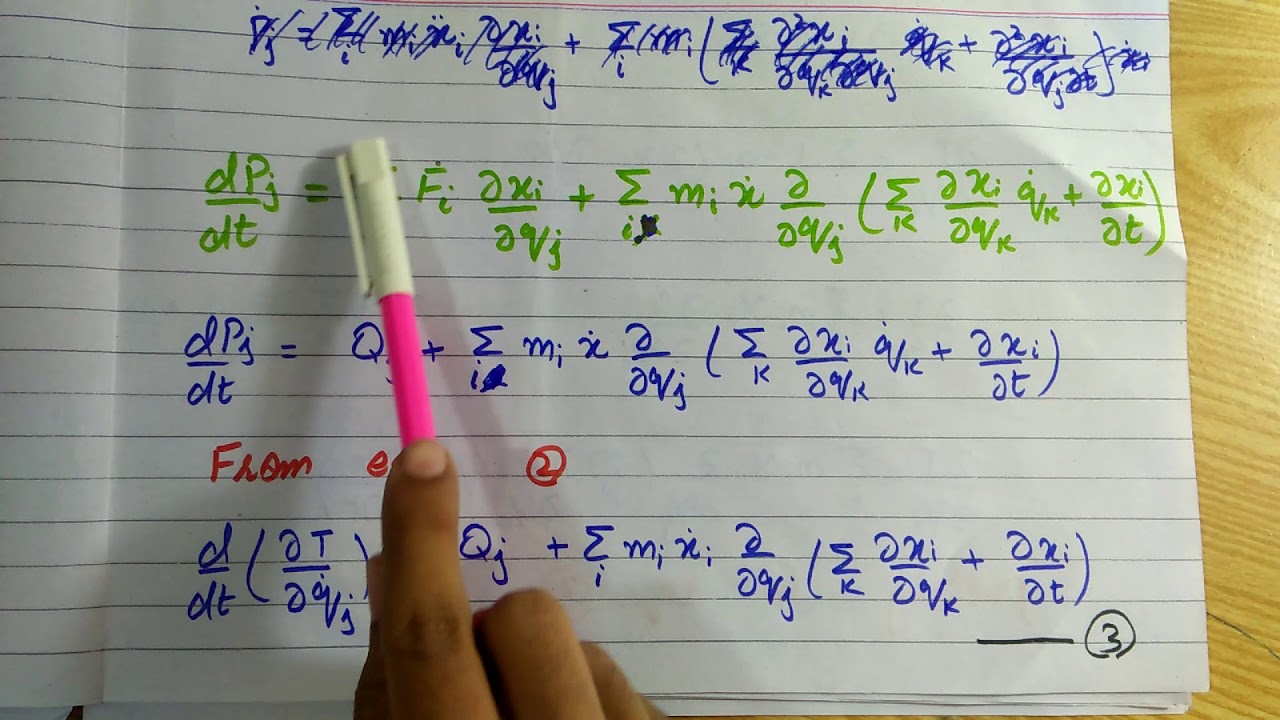 Ṗj = Σi mi ẍi ∂xi/∂qj + Σi mi ( Σk ∂²xi/∂qk ∂qj q̇k + ∂²xi/∂qj ∂t ) ẋi
dPj/dt = Fi ∂xi/∂qj + Σi mi ẋ ∂/∂qj ( ΣK ∂xi/∂qK q̇K + ∂xi/∂t )
dPj/dt = Qj + Σi mi ẋ ∂/∂qj ( ΣK ∂xi/∂qK q̇K + ∂xi/∂t )
From ②
d/dt ( ∂T/∂q̇j ) Qj + Σi mi ẋi ∂/∂qj ( ΣK ∂xi/∂qK + ∂xi/∂t )
③